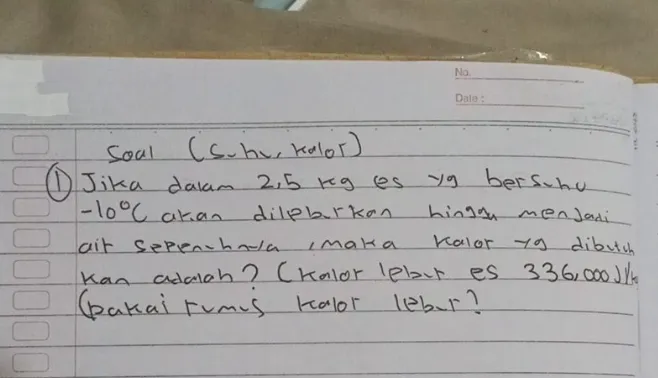 No.
Date :
Soal (suhu, kalor)
① Jika dalam 2,5 kg es yg bersuhu
-10°C akan dileburkan hingga menjadi
air sepenuhnya, maka kalor yg dibutuh
kan adalah? (kalor lebur es 336,000 J/kg
(pakai rumus kalor lebur?